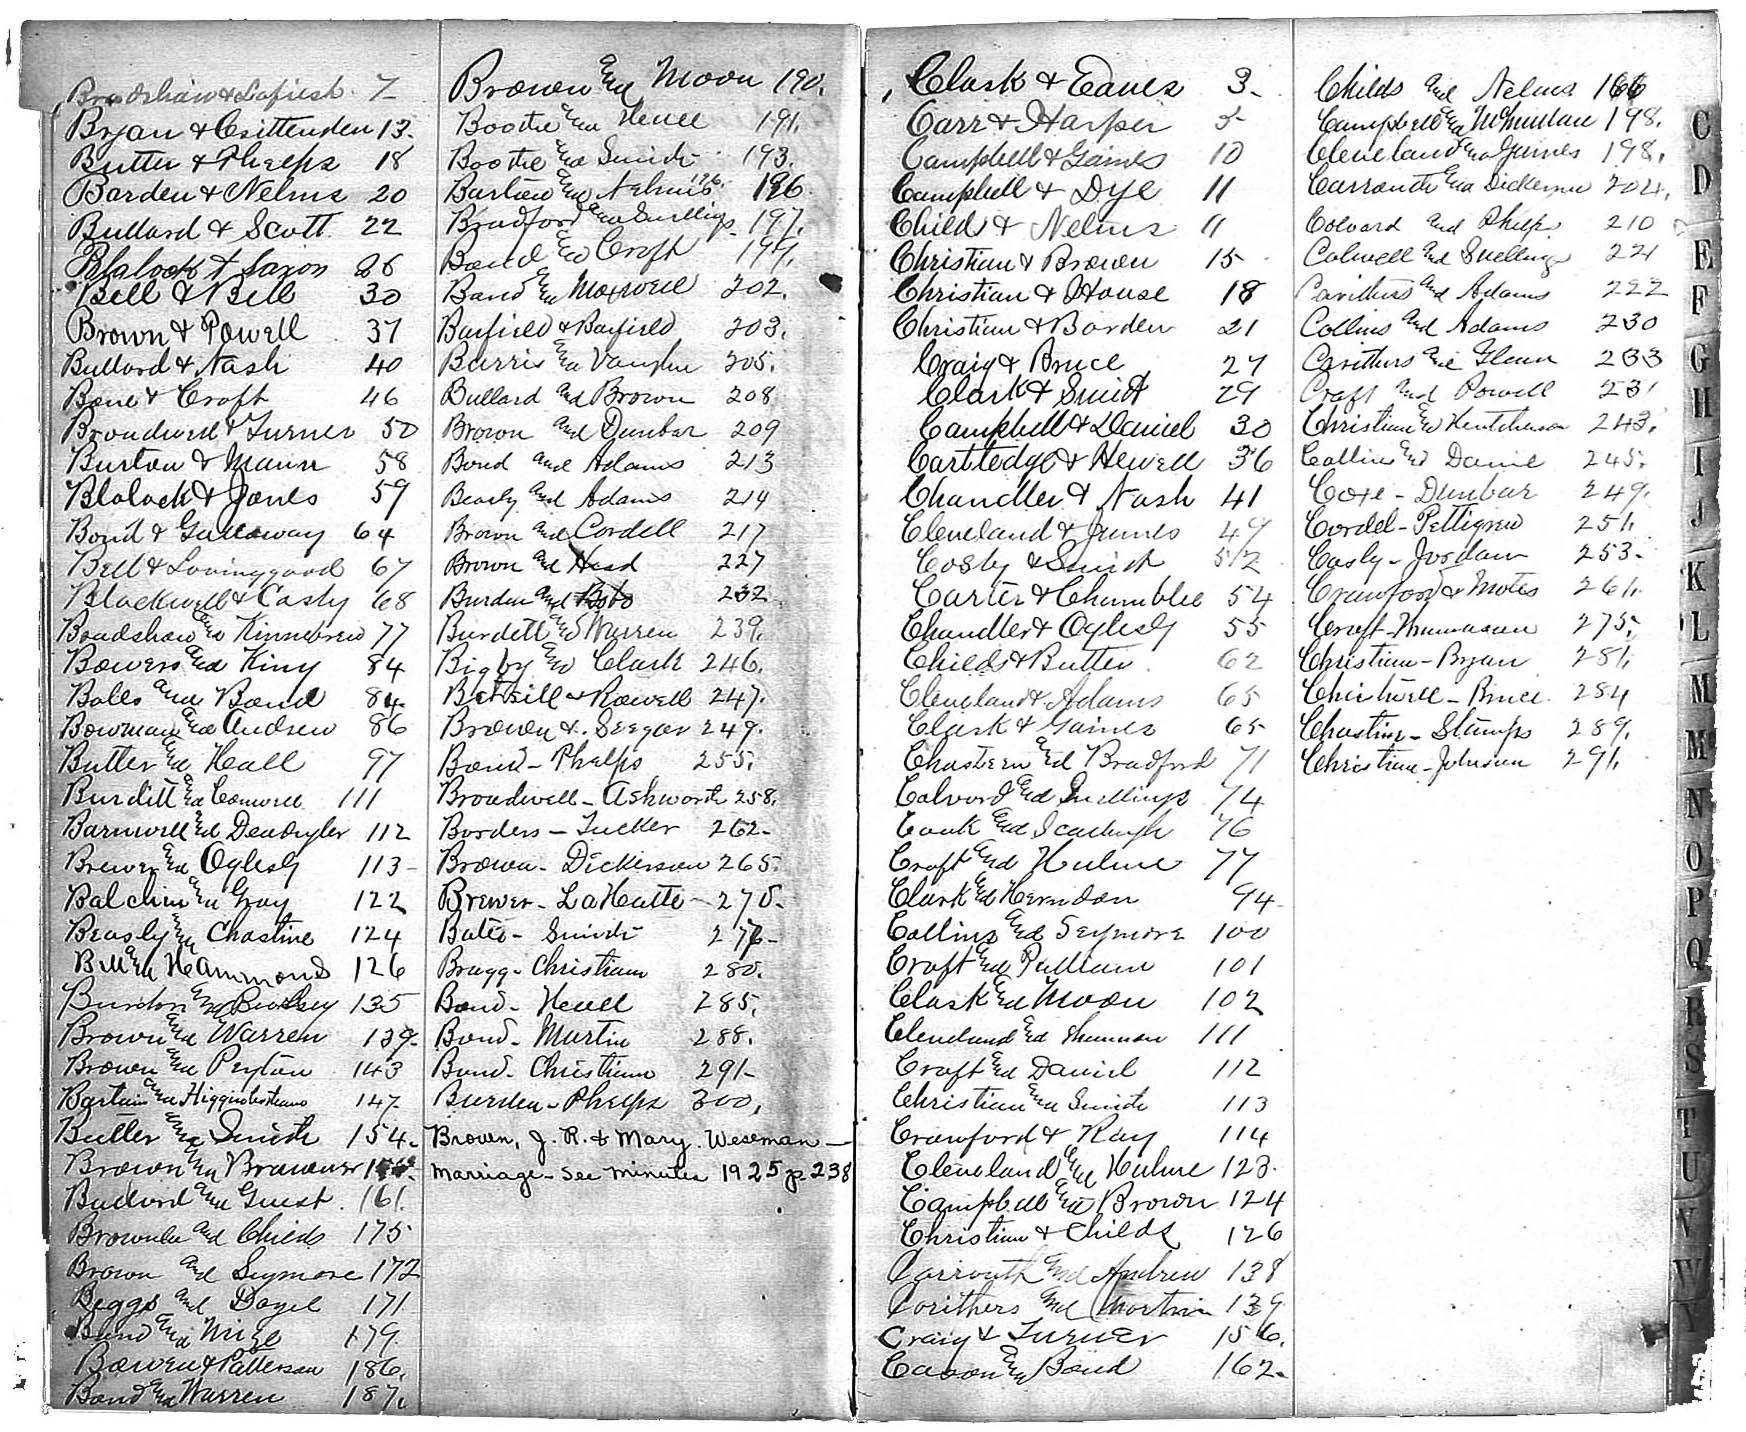 Bradshaw & 7
Bryan & Crittenden 13.
Butter & Phelps 18
Barden & Nelms 20
Bullard & Scott 22
Blalock & Saxon 26
Bell & Bell 30
Brown & Powell 37
Bullard & Nash 40
Bone & Croft 46
Broadwell & Turner 50
Burton & Mann 58
Blalock & Jones 59
Bond & Galloway 64
Bell & Lovinggood 67
Blackwell & Casly 68
Bradshaw and Kinnebrew 77
Bowers and King 84
Bolls and Bond 84.
Bowman and Andrew 86
Butler and Hall 97
Burditt and 111
Barnwell and Deadwyler 112
Brewer and Oglesby 113-
Balchin and Gray 122
Beasly and Chastine 124
Bell and Hammonds 126
and 135
Brown and Warren 139-
Brown and Peyton 143
and Higginbotham 147
Butler and Smith 154-
Brown and Brawner
Bullard and Guest 161.
Brownlee and Childs 175
Brown and Seymore 172
Beggs and 171
Bond and Mize 179
Bowen & Patterson 186.
Bond and Warren 187.
Brown and Moon 190.
Booth and 191.
Booth and Smith 193.
and Nelms 196. 196
Bradford and Snellings 197.
Bond and Croft 199.
Bond and Maxwell 202.
Barfield & Barfield 203.
and Vaughn 205.
Bullard and Brown 208
Brown and Dunbar 209
Bond and Adams 213
Beasly and Adams 214
Brown and Cordell 217
Brown and Head 227
Burden and Bobo 232
Burdett and Warren 239.
Bigby and Clark 246.
Betsill & Rowell 247.
Brown &. Seegar 249.
Bond - Phelps 255.
Broadwell - Ashworth 258.
Borders - Tucker 262-
Brown - Dickerson 265.
Brewer - LaHatte - 270.
Bates - Smith 276-
Bragg - Christian 280.
Bond - Hewell 285.
Bond - Martin 288.
Bond - Christian 291-
Burden - Phelps 300.
Brown, J. R. & Mary. Weseman -
marriage - see minutes 1925 p 238
Clark & Eanes 3-
Carr & Harper 5
Campbell & Gaines 10
Campbell & Dye 11
Child & Nelms 11
Christian & Brown 15
Christian & House 18
Christian & Borden 21
Craig & Bruce 27
Clark & Smith 29
Campbell & Daniel 30
Cartledge & Hewell 36
Chandler & Nash 41
Cleveland & James 49
Cosby & Smith 52
Carter & Chumblee 54
Chandler & Oglesby 55
Childs & Butler 62
Cleveland & Adams 65
Clark & Gaines 65
Chasteen and Bradford 71
Calvord and Snellings 74
Cook and 76
Croft and Hulme 77
Clark and Herndon 94
Collins and Seymore 100
Croft and Pulliam 101
Clark and Moon 102
Cleveland and Thurmon 111
Croft and Daniel 112
Christian and Smith 113
Crawford & Ray 114
Cleveland and Hulme 123.
Campbell and Brown 124
Christian & Childs 126
Carrouth and Andrew 138
Corithers and Martin 139
Craig & Turner 156.
Cason and Bond 162-
Childs and Nelms 166
Campbell and McMullan 198.
Cleveland and James 198.
Carrouth and Dickerson 204.
Colvard and Phelps 210
Colwell and Snellings 221
Carithers and Adams 222
Collins and Adams 230
Carithers and Glenn 233
Craft and Powell 231
Christian and Hutcherson 243.
Collins and Daniel 245.
Coxe - Dunbar 249.
Cordel - Pettigrew 251.
Casly - Jordan 253-
Crawford & Motes 261.
Croft - 275.
Christian - Bryan 281.
Chitwell - Bruce 284
Chastine - Stamps 289.
Christian - Johnson 291.
C
D
E
F
G
H
I
J
K
L
M
M
N
O
P
Q
R
S
T
U
V
W
Y